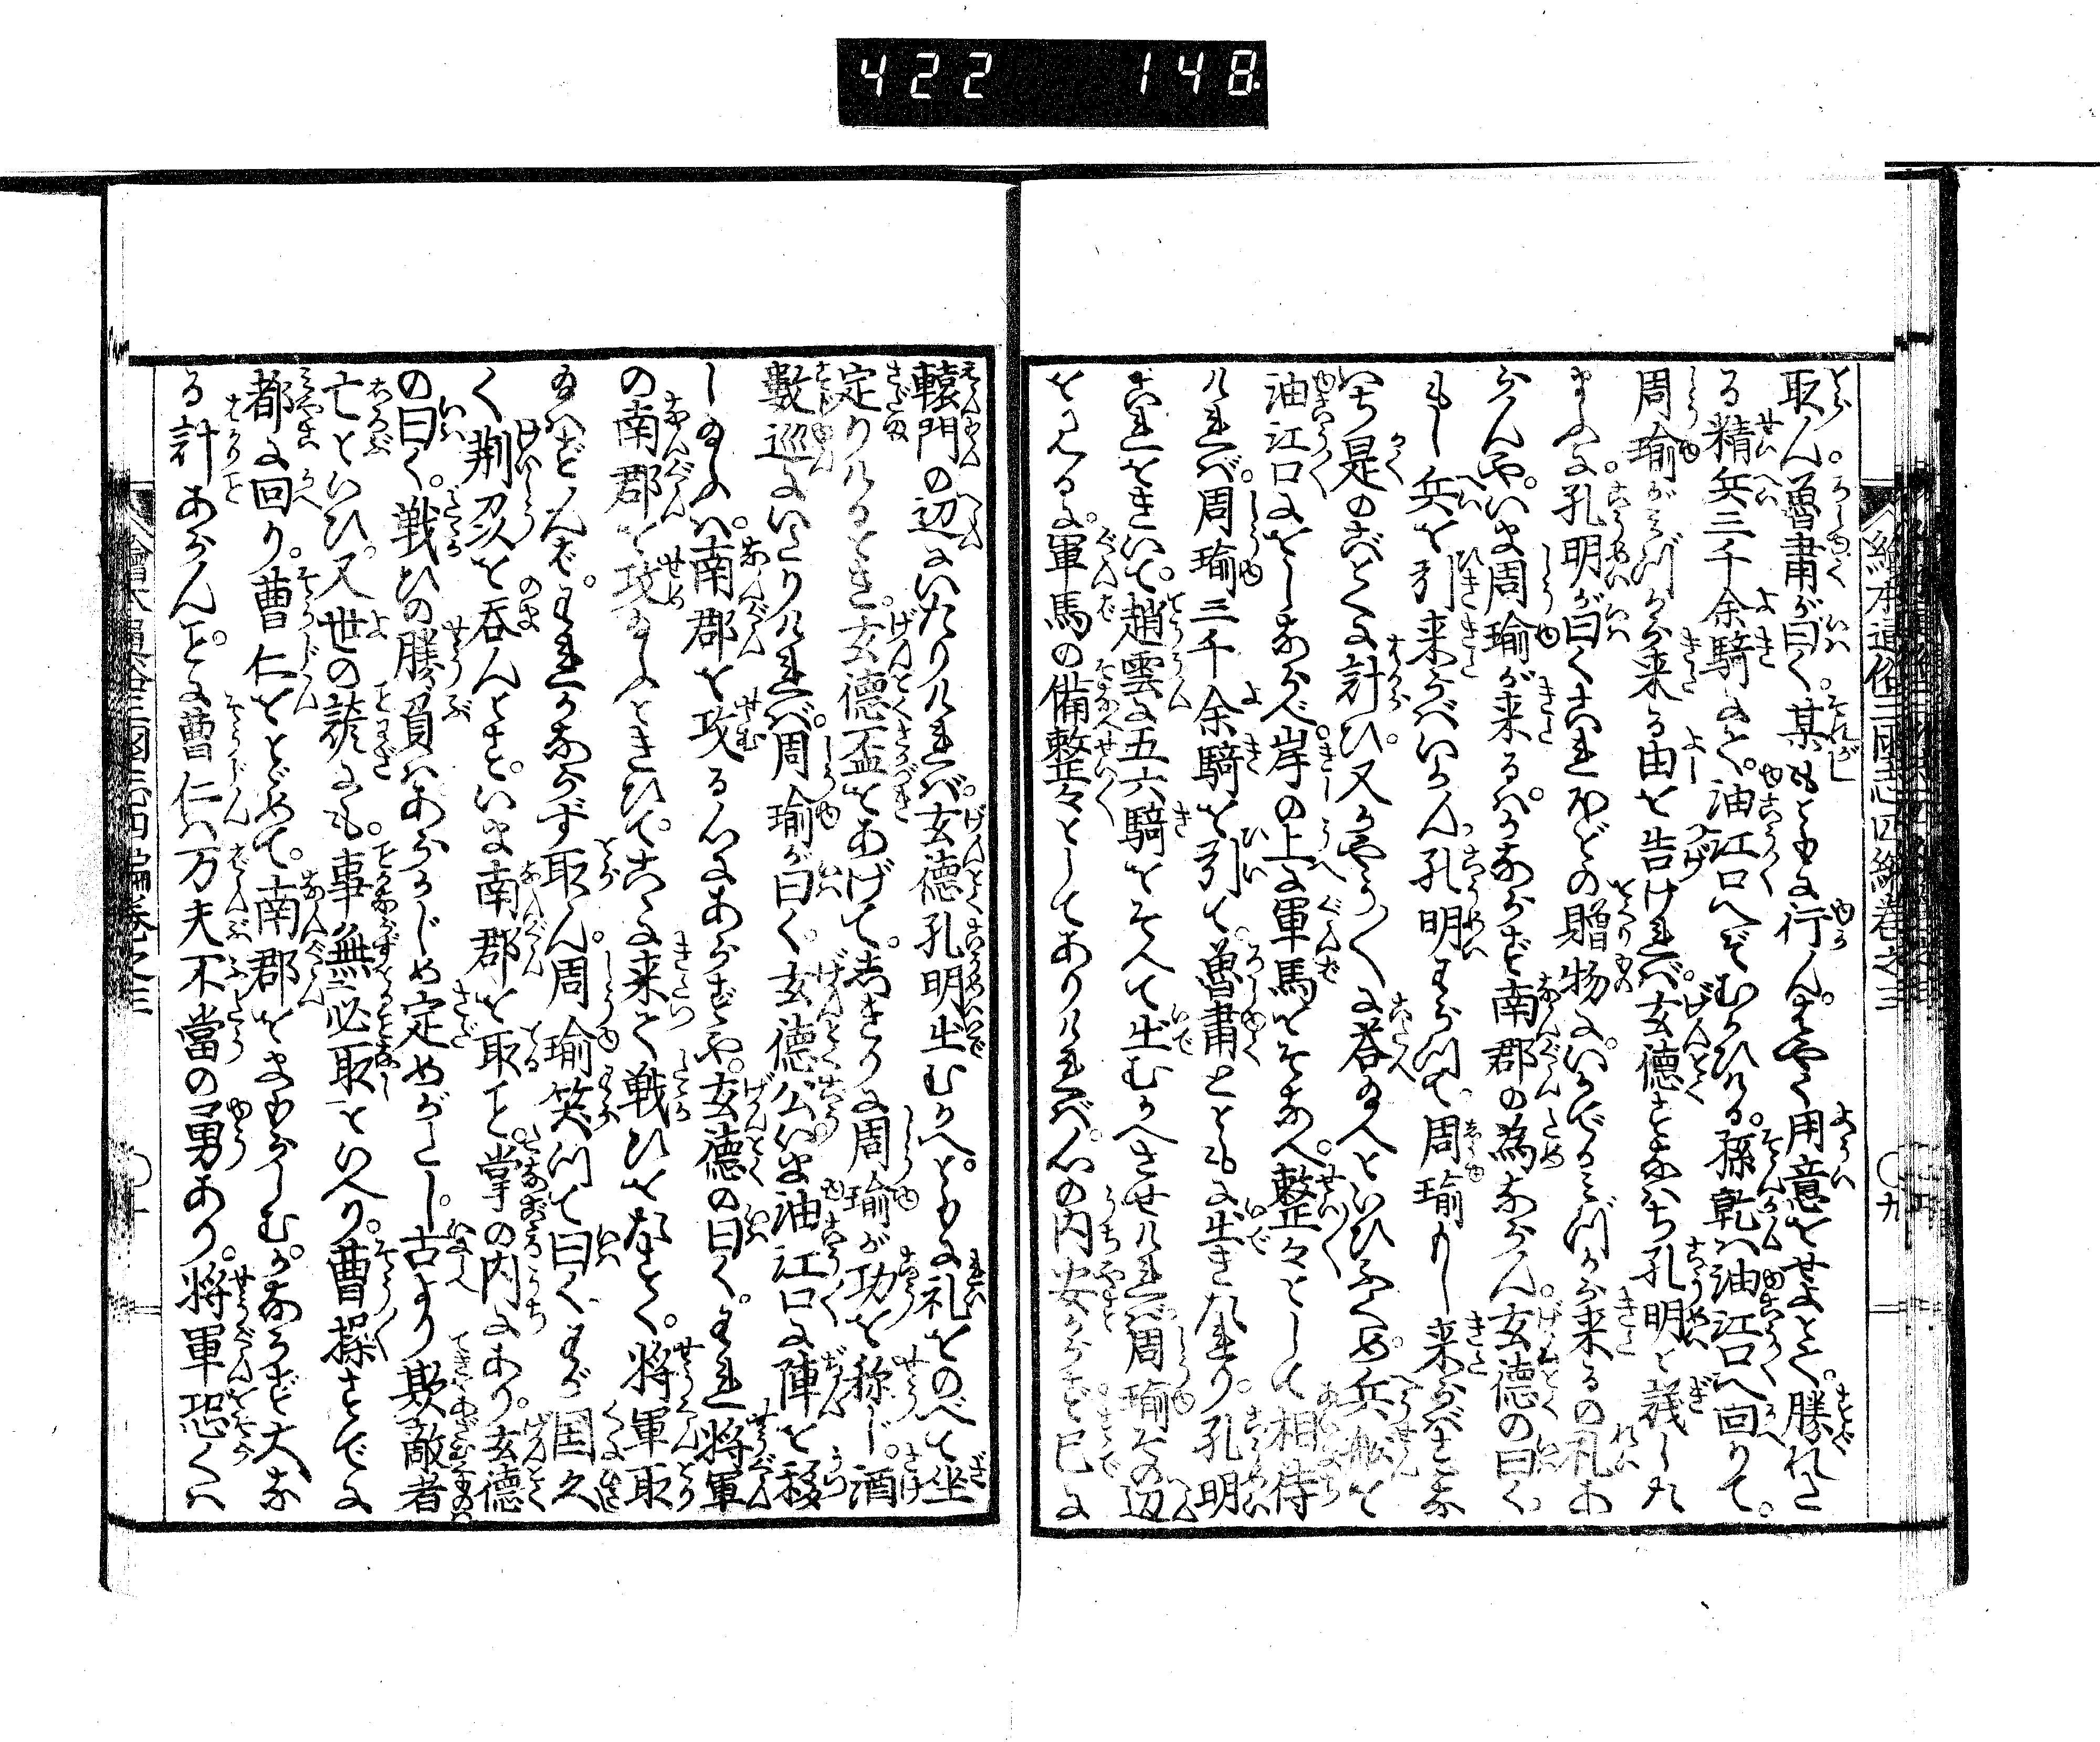 422 148
絵本通俗三国志四編巻之三 ○九
取ん。魯粛が曰く。某もともに行ん。はやく用意をせよとて。勝れた
る精兵三千余騎にて。油江口へぞむかひける。孫乾ハ油江口へ回りて。
周瑜がみづから来る由を告けれバ。玄徳すなハち孔明と議し玉
ふに。孔明が曰くこれほどの贈物に。いかでみづから来るの礼あ
らんや。いま周瑜が来るハ。かならず南郡の為ならん。玄徳の曰く。
もし兵を引来らバいかん。孔明わらつて。周瑜もし来らバすな
ハち是のごとくに計ひ。又かやう〳〵に答玉へといひふくめ。兵舩を
油江口にそなへ。岸の上に軍馬をそなへ。整々として相待
けれバ。周瑜三千余騎を引て。魯粛とともに出きたれり。孔明
これをきいて。趙雲に五六騎をそへて出むかへさせけれバ周瑜その辺
を見るに。軍馬の備整々としてありけれバ。心の内安からず。已に
轅門の辺にいたりけれバ。玄徳孔明出むかへ。ともに礼をのべて坐
定りけるとき。玄徳盃をあげて。しきりに周瑜が功を称じ。酒
数巡にいたりけれバ。周瑜が曰く。玄徳公いま油江口に陣を移
し玉ふハ。南郡を攻る心にあらずや。玄徳の曰く。われ将軍
の南郡を攻玉ふときひて。こゝに来て戦ひをたすく。将軍取
玉ハずんバ。われかならず取ん。周瑜笑つて曰くわが国久し
く荊州を呑んとす。いま南郡を取こと。掌の内にあり。玄徳
の曰く。戦ひの勝負ハあらかじめ定めがたし。古より欺敵者
亡といひ。又世の諺にも。事無必取といへり。曹操すでに
都に回り。曹仁をとゞめて。南郡をまもらしむ。かならず大な
る計あらん。ことに曹仁ハ万夫不當の勇あり。将軍恐くハ
繪本通俗三國志四編巻之三